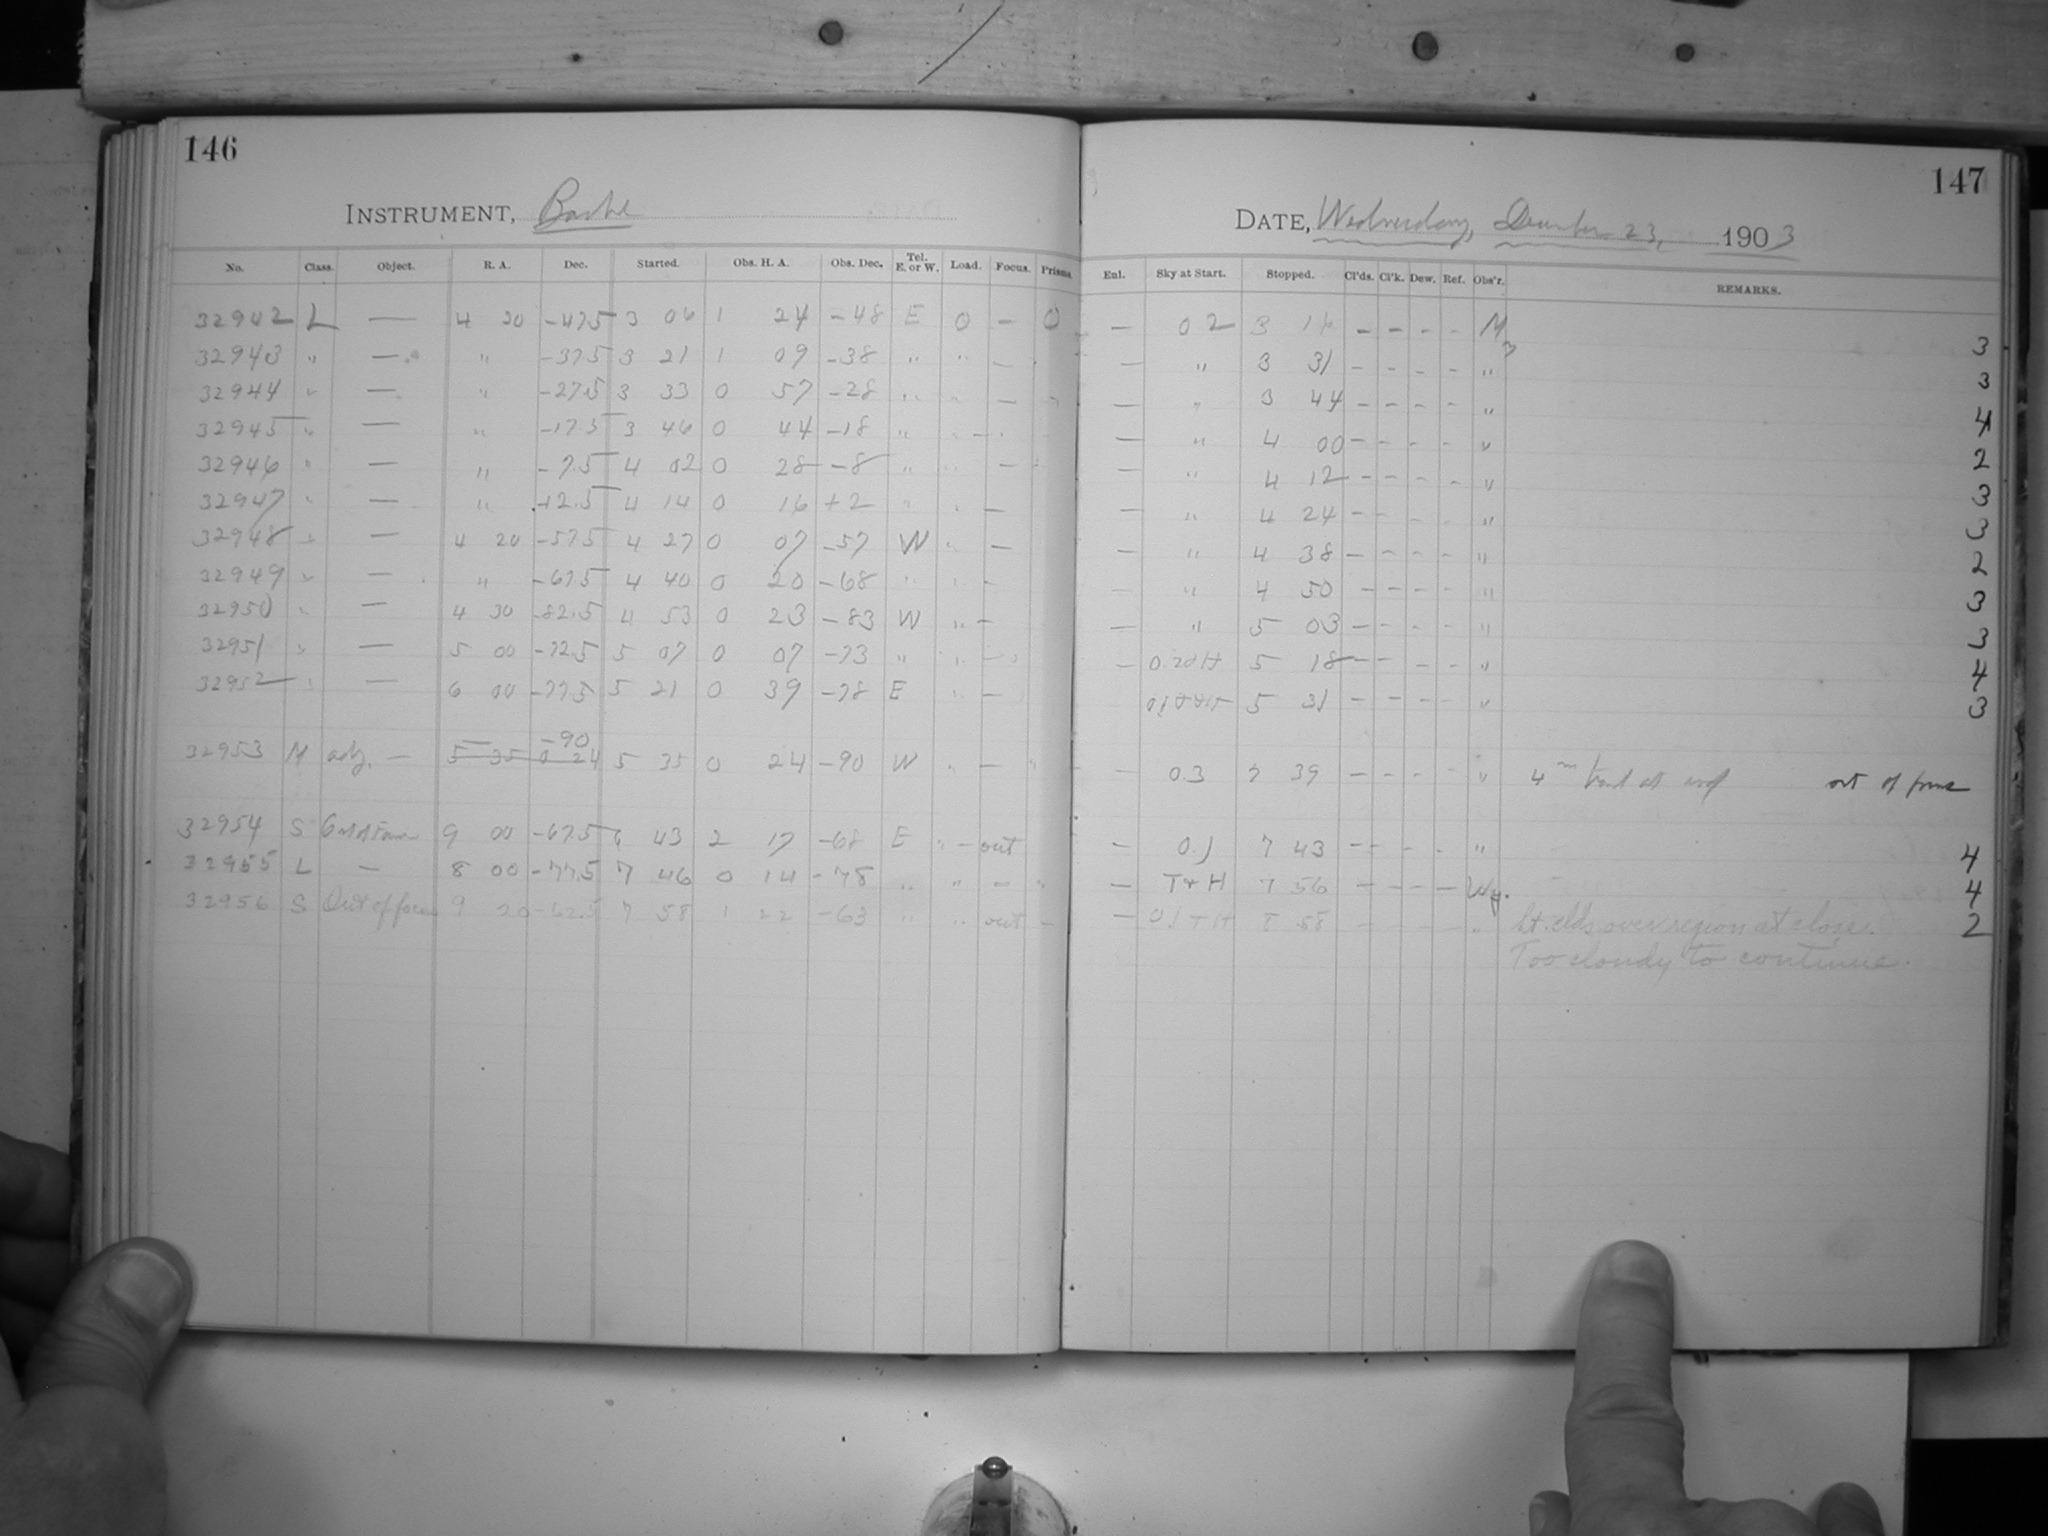 146
INSTRUMENT, Bache
No. Class. Object. R. A. Dec. Started. Obs. H. A. Obs. Dec. Tel. E. or W. Load. Focus. Prisms.
32942 L — 4 20 -47.5 3 06 1 24 -48 E 0 — 0
32943 " — " -37.5 3 21 1 09 -38 " " —
32944 " — " -27.5 3 33 0 57 -28 " " — "
32945 " — " -17.5 3 46 0 44 -18 " " —
32946 " — " -7.5 4 02 0 28 -8 " " —
32947 " — " +2.5 4 14 0 16 +2 " " —
32948 " — 4 20 -57.5 4 27 0 07 -57 W " —
32949 " — " -67.5 4 40 0 20 -68 " " —
32950 " — 4 30 -82.5 4 53 0 23 -83 W " —
32951 " — 5 00 -72.5 5 07 0 07 -73 " " —
32952 " — 6 00 -77.5 5 21 0 39 -78 E " —
-90
32953 adj. — 5 35 0 24 5 35 0 24 -90 W " — "
32954 S Out of Focus 9 00 -67.5 6 43 2 17 -68 E " — out
32955 L — 8 00 -77.5 7 46 0 14 -78 " " — "
32956 S Out of focus 9 20 -62.5 7 58 1 22 -63 " " out —
147
DATE, Wednesday, December 23, 1903
Enl. Sky at Start. Stopped. Cl'ds. Cl'k. Dew. Ref. Obs'r. REMARKS.
— 02 3 16 — — — — M 3
— " 3 31 — — — — " 3
— " 3 44 — — — — " 4
— " 4 00 — — — — " 2
— " 4 12 — — — — " 3
— " 4 24 — — — — " 3
— " 4 38 — — — — " 2
" 4 50 — — — — " 3
— " 5 03 — — — — " 3
— 5 18 — — — " 4
5 31 — — — — " 3
— 0.3 39 — — — — " 4 m trail at end out of focus
— 7 43 — — — — " 4
— T+H 7 56 — — — — Wy. 4
— 0.1 T+H 8 58 — — — — " Lt. clds over region at close. 2
Too cloudy to continue.